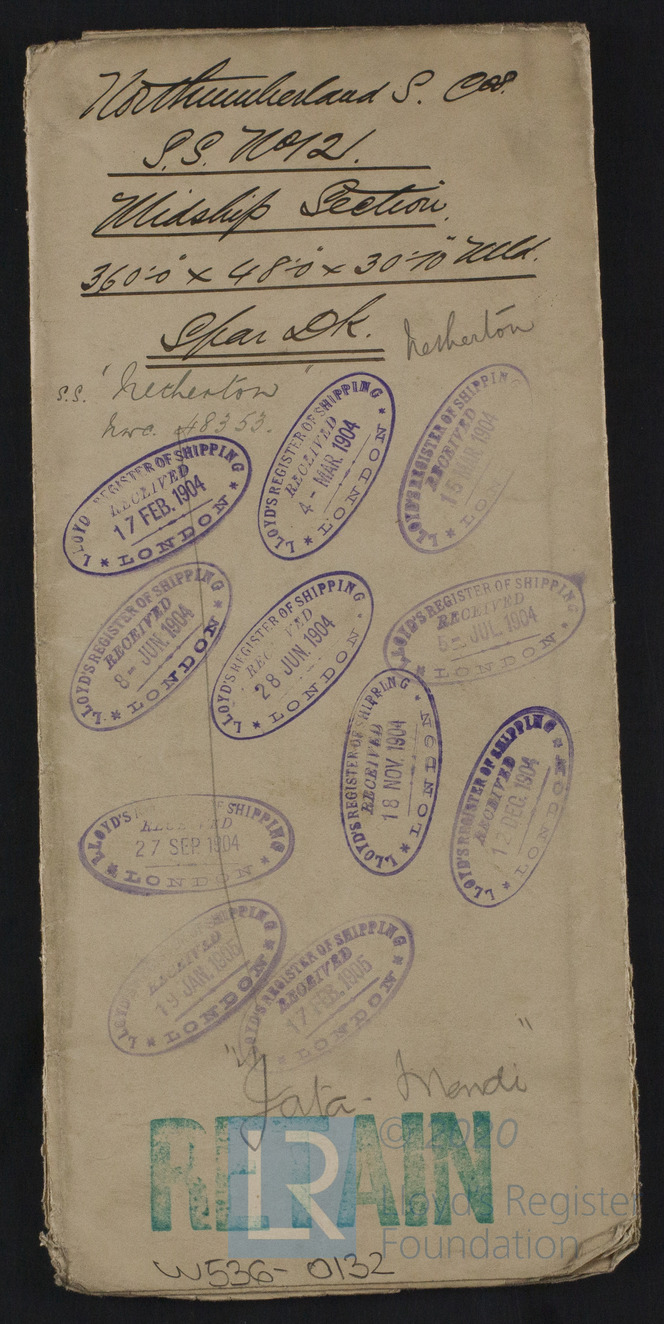 Northumberland S. Cos.
S.S. No 12.
Midship Section.
360'·0" x 48'·0" x 30'·10" Mld.
Spar Dk.
Netherton
S.S. "Netherton"
Nwc. 48353.
LLOYD'S REGISTER OF SHIPPING
RECEIVED
17 FEB. 1904
* LONDON *
LLOYD'S REGISTER OF SHIPPING
RECEIVED
4 - MAR. 1904
* LONDON *
LLOYD'S REGISTER OF SHIPPING
RECEIVED
15 MAR. 1904
* LONDON
LLOYD'S REGISTER OF SHIPPING
RECEIVED
8 - JUN. 1904
* LONDON *
LLOYD'S REGISTER OF SHIPPING
RECEIVED
28 JUN. 1904
* LONDON
LLOYD'S REGISTER OF SHIPPING
RECEIVED
5 - JUL. 1904
* LONDON *
LLOYD'S REGISTER OF SHIPPING
RECEIVED
18 NOV. 1904
* LONDON
LLOYD'S REGISTER OF SHIPPING
RECEIVED
12 DEC. 1904
* LONDON *
LLOYD'S REGISTER OF SHIPPING
RECEIVED
27 SEP. 1904
* LONDON *
LLOYD'S REGISTER OF SHIPPING
RECEIVED
19 JAN. 1905
* LONDON *
LLOYD'S REGISTER OF SHIPPING
RECEIVED
17 FEB. 1905
* LONDON *
"Jata- Mendi"
RETAIN
LR
© 2020
Lloyd's Register
Foundation
W536-0132